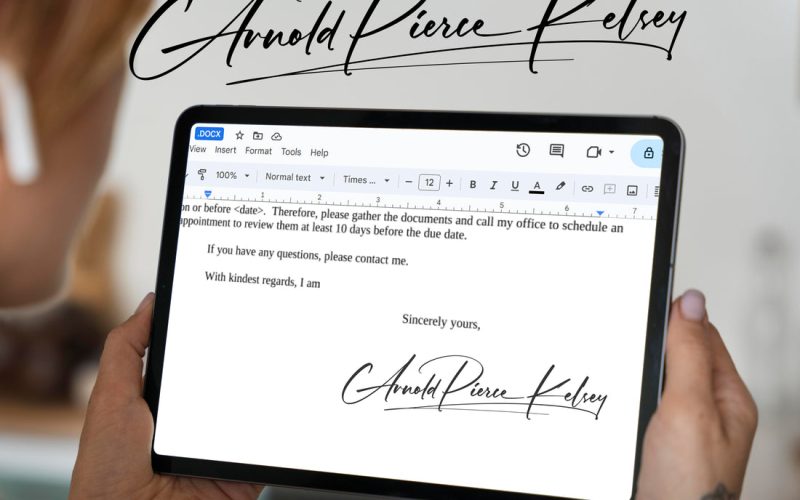 Arnold Pierce Kelsey
.DOCX
View Insert Format Tools Help
100% Normal text Times ... 12 B I U A
1 2 3 4 5 6 7
on or before <date>. Therefore, please gather the documents and call my office to schedule an
appointment to review them at least 10 days before the due date.
If you have any questions, please contact me.
With kindest regards, I am
Sincerely yours,
Arnold Pierce Kelsey